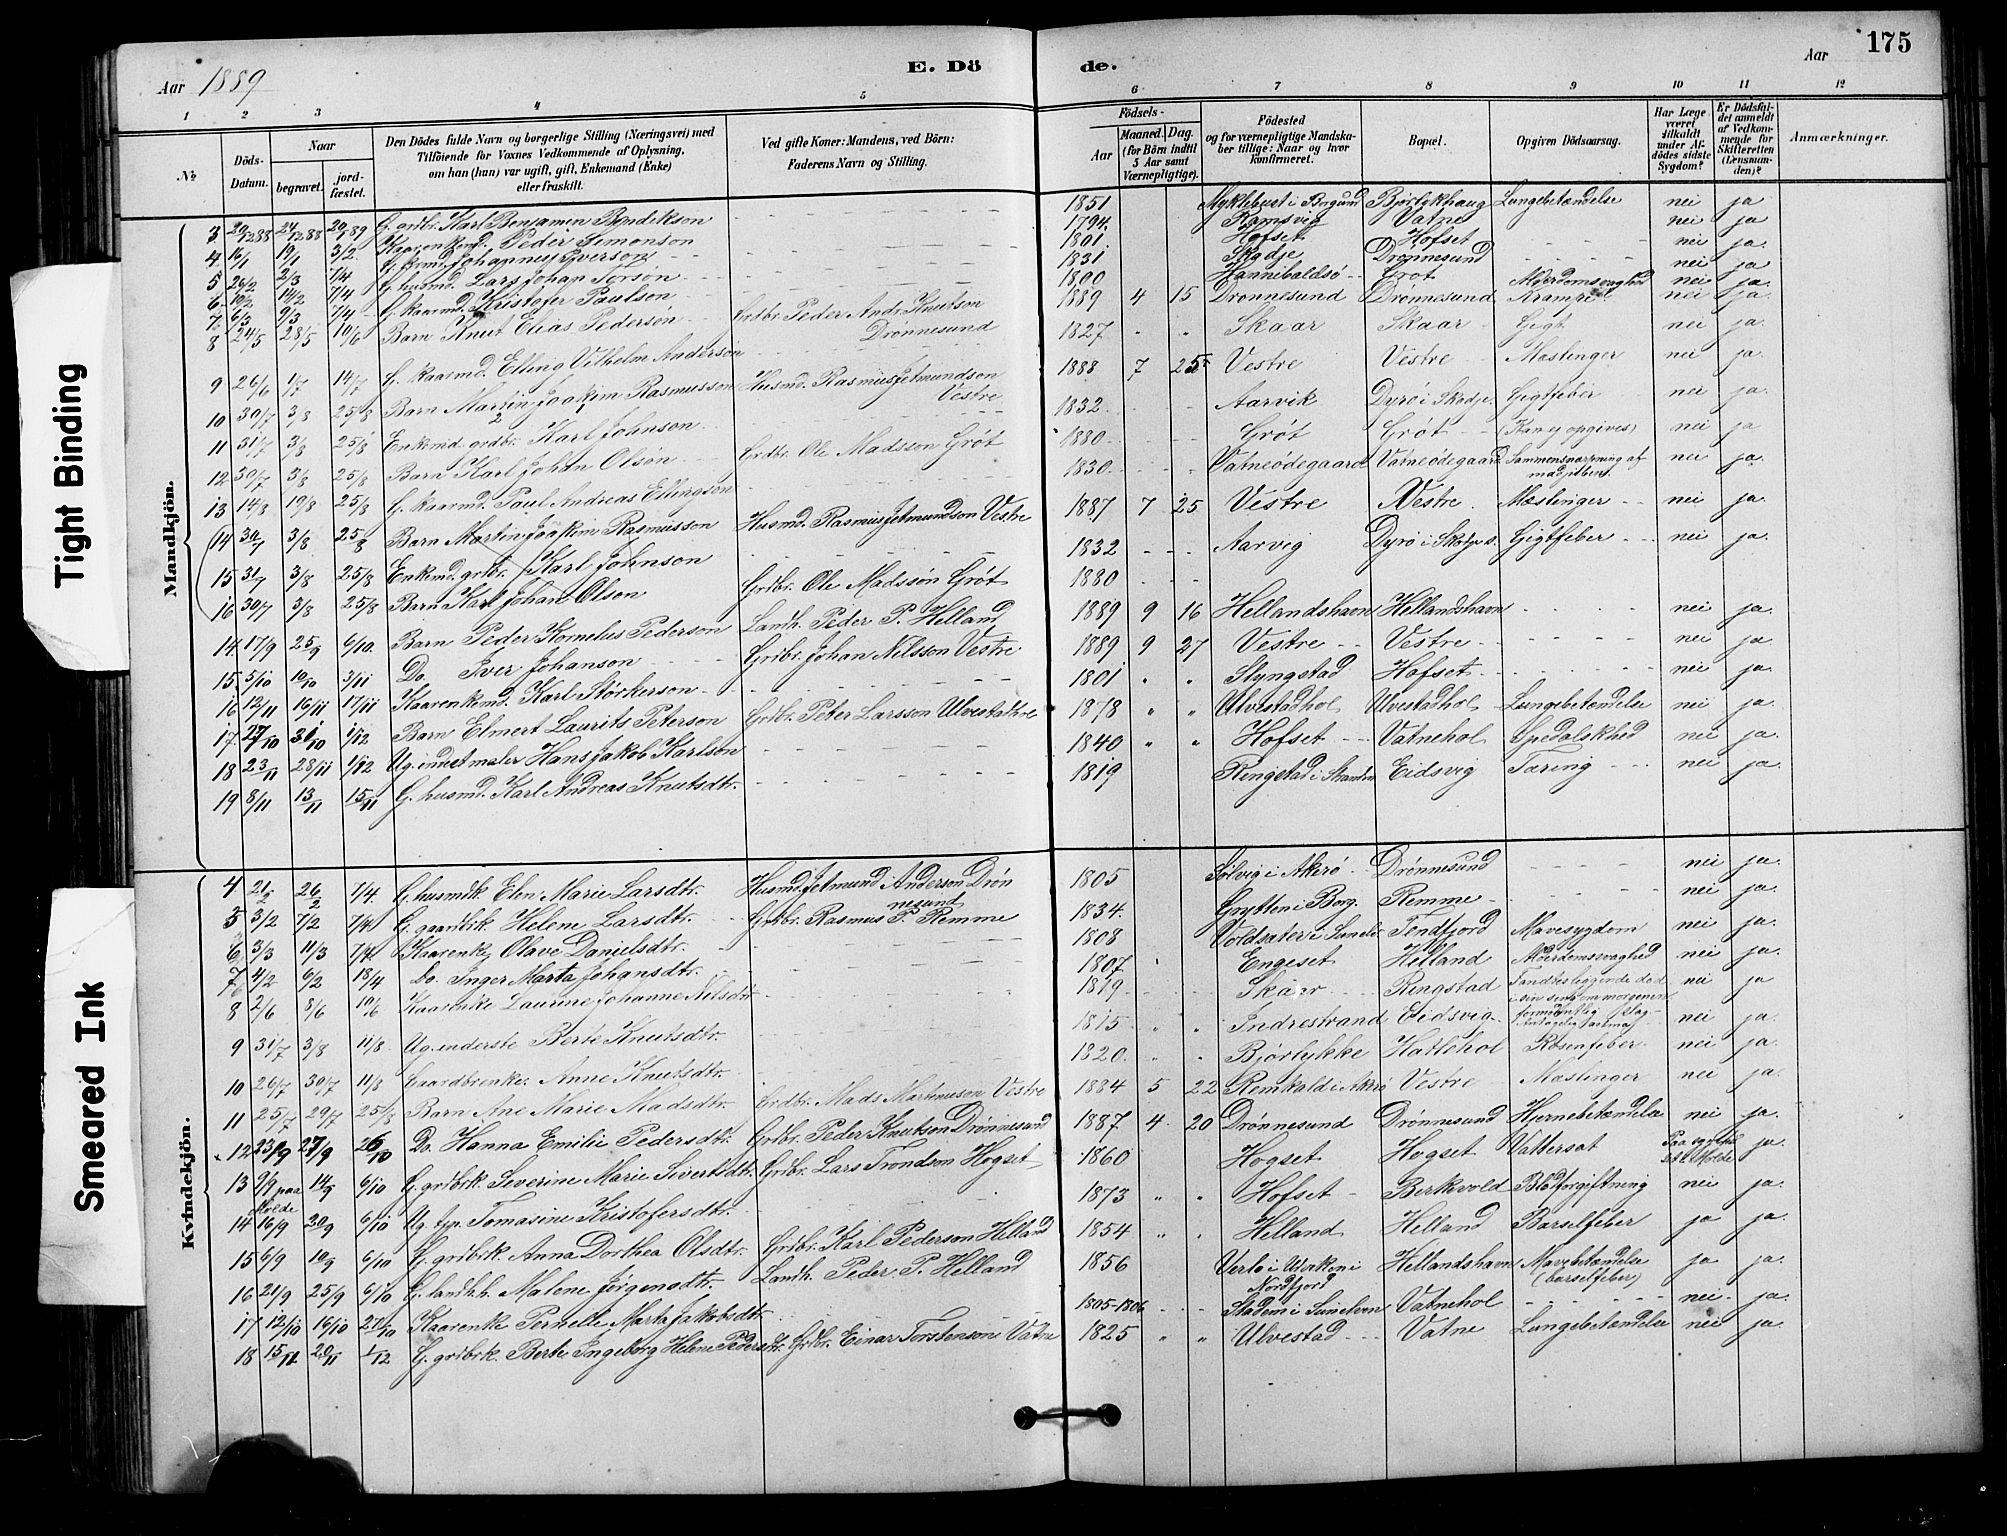 Tight Binding
Smeared Ink
Aar 1889
E. Dö
de.
Aar
175
1 2 3 4 5 6 7 8 9 10 11 12
No
Döds-Datum.
Naar
begravet.
jord-fæstet.
Den Dödes fulde Navn og borgerlige Stilling (Næringsvei) med
Tilföiende for Voxnes Vedkommende af Oplysning,
om han (hun) var ugift, gift, Enkemand (Enke)
eller fraskilt.
Ved gifte Koner: Mandens, ved Börn:
Faderens Navn og Stilling.
Födsels-
Aar
Maaned. Dag.
(for Börn indtil
5 Aar samt
Værnepligtige).
Födested
og for værnepligtige Mandska-
ber tillige: Naar og hvor
konfirmeret.
Bopæl.
Opgiven Dödsaarsag.
Har Læge
været
tilkaldt
under Af-
dödes sidste
Sygdom?
Er Dödsfal-
det anmeldt
af Vedkom-
mende for
Skifteretten
(Lensman-
den)?
Anmærkninger.
Mandkjön.
3 20/12 88 27/12 88 20/1 89 G. grdbr. Karl Benjamin Bendikson 1851 Myklebust i Borgund Bjørlykhaug Lungebetændelse nei ja
4 16/1 19/1 3/2 Kaarenkmd. Peder Simonson 1794 Ramsvig Vatne nei ja
G. Johannes Iverson 1801 Hofset Hofset nei ja
5 26/2 2/3 7/4 G. husmd. Lars Johan Torson 1831 Skodje Drønnesund nei ja
6 10/2 14/2 7/4 G. kaarmd. Kristofer Paulson 1800 Hannibaldsø Grøt Alderdomsvaghed nei ja
7 6/3 9/3 7/4
8 24/5 28/5 10/6 Barn Knut Elias Pederson Grdbr. Peder Andr. Knutson Drønnesund 1889 4 15 Drønnesund Drønnesund Krampe nei ja
9 26/6 1/7 14/7 G. kaarmd. Elling Vilhelm Anderson 1827 Skaar Skaar Gigt nei ja
10 30/7 3/8 25/8 Barn Martin Joakim Rasmusson Husmd. Rasmus Jetmundson Vestre 1888 7 25 Vestre Vestre Mæslinger nei ja
11 31/7 3/8 25/8 Enkemd. grdbr. Karl Johnson 1832 Aarvik Dyrø i Skodje Gigtfeber nei ja
12 30/7 3/8 25/8 Barn Karl Johan Olson Grdbr. Ole Madsson Grøt 1880 Grøt Grøt (Kan ej opgives) nei ja
13 14/8 19/8 25/8 G. kaarmd. Paul Andreas Ellingson 1830 Vatneødegaard Vatneødegaard Sammensnørpning af nei ja
14 30/7 3/8 25/8 Barn Martin Joakim Rasmusson Husmd. Rasmus Jetmundson Vestre 1887 7 25 Vestre Vestre Mæslinger nei ja
15 31/7 3/8 25/8 Enkemd. grdbr. Karl Johnson 1832 Aarvig Dyrø i Skodje s. Gigtfeber nei ja
16 30/7 3/8 25/8 Barn Karl Johan Olson Grdbr. Ole Madsson Grøt 1880
14 17/9 25/9 6/10 Barn Peder Kornelius Pederson Landh. Peder P. Helland 1889 9 16 Hellandshavn Hellandshavn nei ja
15 5/10 10/10 3/11 Do. Iver Johanson Grdbr. Johan Nilsson Vestre 1889 9 27 Vestre Vestre nei ja
16 12/11 16/11 17/11 Kaarenkmd. Karl Størkerson 1801 " " Slyngstad Hofset nei ja
17 27/10 31/10 1/12 Barn Elmert Laurits Peterson Grdbr. Peter Larsson Ulvestadhol 1878 " " Ulvestadhol Ulvestadhol Lungebetændelse nei ja
18 23/11 28/11 1/12 Ug. inderst maler Hans Jakob Karlson 1840 " " Hofset Vatnehol Spedalskhed nei ja
19 8/11 13/11 15/11 G. husmd. Karl Andreas Knutsdtr. 1819 Ringstad i Stranden Eidsvig Tæring nei ja
Kvindekjön.
4 21/2 26/2 7/4 G. husmdk. Elen Marie Larsdtr. Husmd. Jetmund Anderson Drønnesund 1805 Solvig i Akerø Drønnesund nei ja
5 3/2 7/2 7/4 G. gaardbrk. Helene Larsdtr. Grdbr. Rasmus P. Remme 1834 Grytten i Borg. Remme nei ja
6 3/3 11/3 7/4 Kaarenke Olave Danielsdtr. 1808 Voldsæter i Sunelv. Tendfjord Mavesygdom nei ja
7 4/2 6/2 18/4 Do. Inger Marta Johansdtr. 1807 Engeset Helland Alderdomsvaghed nei ja
8 2/6 8/6 10/6 Kaarenke Laurine Johanne Nilsdtr. 1819 Skaar Ringstad Fandtes liggende død i sin seng om morgenen nei ja
9 31/7 3/8 11/8 Ug. inderste Berte Knutsdtr. 1815 " " Indrestrand Eidsvig nei ja
10 26/7 30/7 11/8 Gaardbrenke Anne Knutsdtr. 1820 " " Bjørlykke Hatlehol Rosenfeber nei ja
11 25/7 29/7 25/8 Barn Ane Marie Madsdtr. Grdbr. Mads Martinuson Vestre 1884 5 22 Remkald i Akrø Vestre Mæslinger nei ja
12 23/9 27/9 26/10 Do. Hanna Emilie Pedersdtr. Grdbr. Peder Knutson Drønnesund 1887 4 20 Drønnesund Drønnesund Hjernebetændelse nei ja
13 9/9 paa Molde 14/9 6/10 G. grdbrk. Severine Marie Sivertsdtr. Grdbr. Lars Trondson Hogset 1860 Hogset Hogset Vattersot Paa sygehus Molde ja
14 16/9 20/9 6/10 Ug. tjp. Tomasine Kristofersdtr. 1873 " " Hofset Berkevold Blodforgiftning nei ja
15 6/9 10/9 6/10 G. grdbrk. Anna Dorthea Olsdtr. Grdbr. Karl Pederson Helland 1854 " " Helland Helland Barselfeber ja ja
16 21/9 25/9 6/10 G. landhk. Malene Jørgensdtr. Landh. Peder P. Helland 1856 Nordfjord Hellandshavn Mavebetændelse (barselfeber) ja ja
17 12/10 16/10 27/10 Kaarenke Pernelle Marta Jakobsdtr. 1805-1806 Stadem i Sunelven Vatnehol nei ja
18 15/11 20/11 1/12 G. grdbrk. Berte Ingeborg Helene Pedersdtr. Grdbr. Einar Torstenson Vatne 1825 " " Ulvestad Vatne Lungebetændelse nei ja